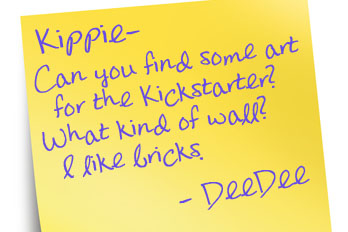 Kippie-
Can you find some art
for the Kickstarter?
What kind of wall?
I like bricks.
- DeeDee